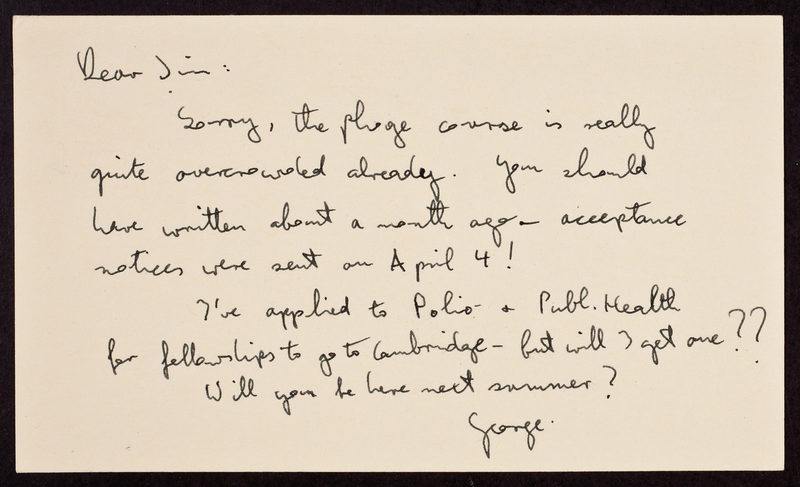 Dear Jim:
Sorry, the phage course is really
quite overcrowded already. You should
have written about a month ago – acceptance
notices were sent on April 4!
I've applied to Polio- & Publ. Health
for fellowships to go to Cambridge – but will I get one??
Will you be here next summer?
George.